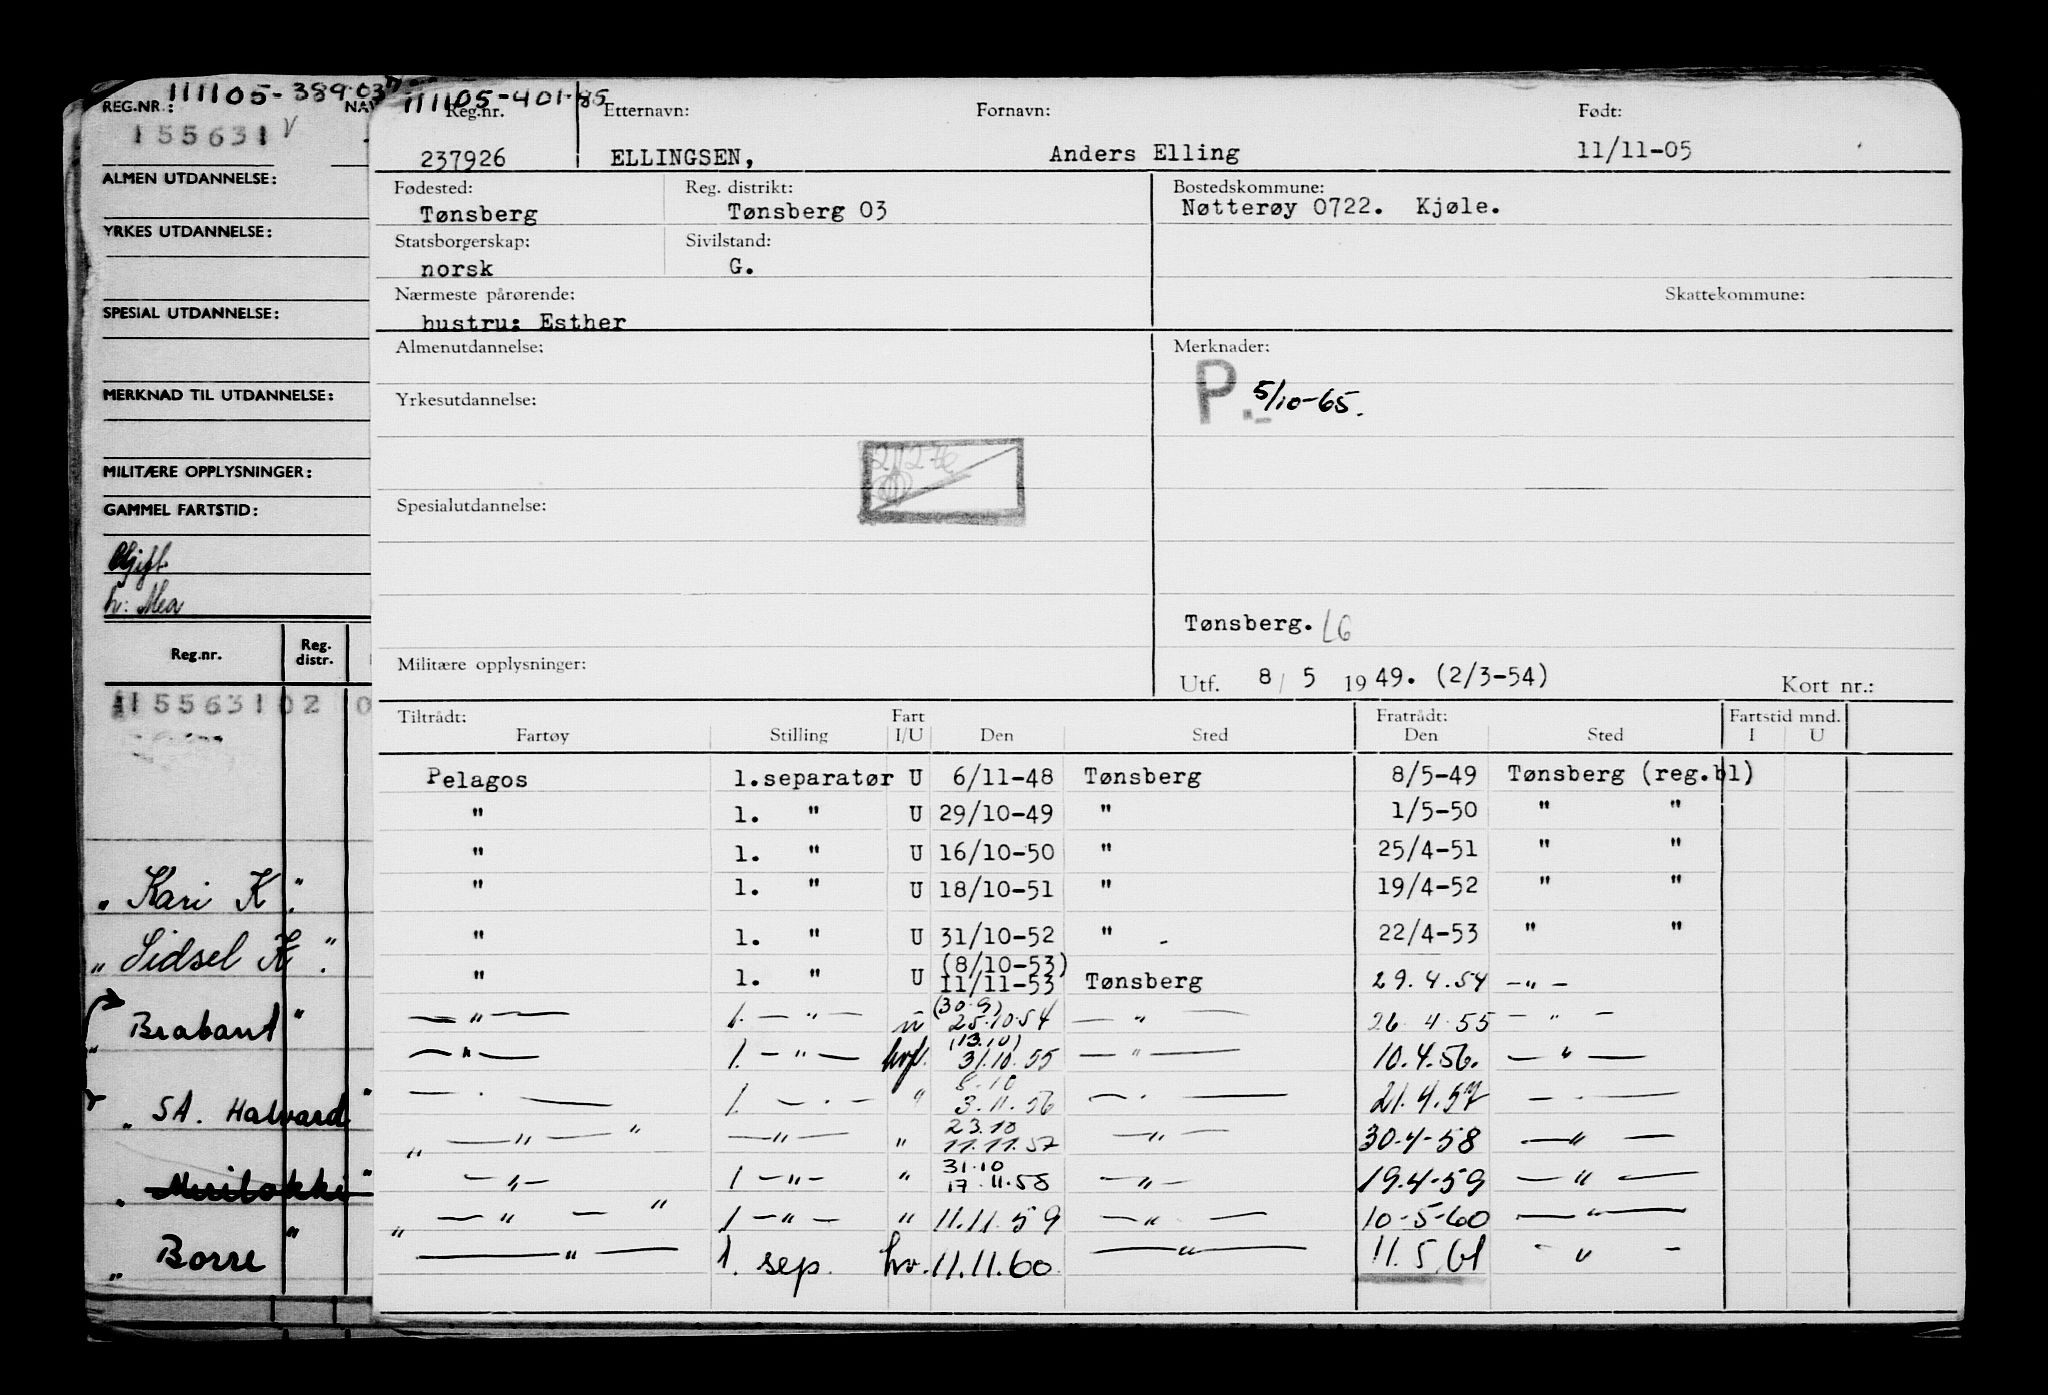 111105-389.03
REG.NR.:
155631 V
ALMEN UTDANNELSE:
YRKES UTDANNELSE:
SPESIAL UTDANNELSE:
MERKNAD TIL UTDANNELSE:
MILITÆRE OPPLYSNINGER:
GAMMEL FARTSTID:
Gift.
h: Mea
Reg.nr. Reg. distr.
155631 02 0
" Kari K. "
" Sidsel K. "
" Brabant "
" St. Halvard "
" Borre "
111105-401.85
Reg.nr. Etternavn: Fornavn: Født:
237926 ELLINGSEN, Anders Elling 11/11-05
Fødested: Reg. distrikt: Bostedskommune:
Tønsberg Tønsberg 03 Nøtterøy 0722. Kjøle.
Statsborgerskap: Sivilstand:
norsk G.
Nærmeste pårørende: Skattekommune:
hustru: Esther
Almenutdannelse: Merknader:
P. 5/10-65.
Yrkesutdannelse:
Spesialutdannelse:
Tønsberg. LG
Militære opplysninger:
Utf. 8/ 5 1949. (2/3-54) Kort nr.:
Tiltrådt: Fart Fratrådt: Fartstid mnd.
Fartøy Stilling I/U Den Sted Den Sted I U
Pelagos 1.separatør U 6/11-48 Tønsberg 8/5-49 Tønsberg (reg.bl)
" 1. " U 29/10-49 " 1/5-50 " "
" 1. " U 16/10-50 " 25/4-51 " "
" 1. " U 18/10-51 " 19/4-52 " "
" 1. " U 31/10-52 " - 22/4-53 " "
(8/10-53)
" 1. " U 11/11-53 Tønsberg 29.4.54 -"-
(30.9)
-"- 1. -"- u 25.10.54 -"- 26.4.55 -"-
(13.10)
-"- 1. -"- hvf. 31.10.55 -"- 10.4.56. -"-
8.10
-"- 1. -"- " 3.11.56 -"- 21.4.57 -"-
23.10
" -"- " -"- " 11.11.57 -"- 30-4-58 -"-
31.10
-"- 1 -"- " 17.11.58 -"- 19.4-59 -"-
" -"- " 1 -"- " 11.11.59 -"- 10-5-60 -"-
-"- 1. sep. hv. 11.11.60 -"- 11.5.61 -"-